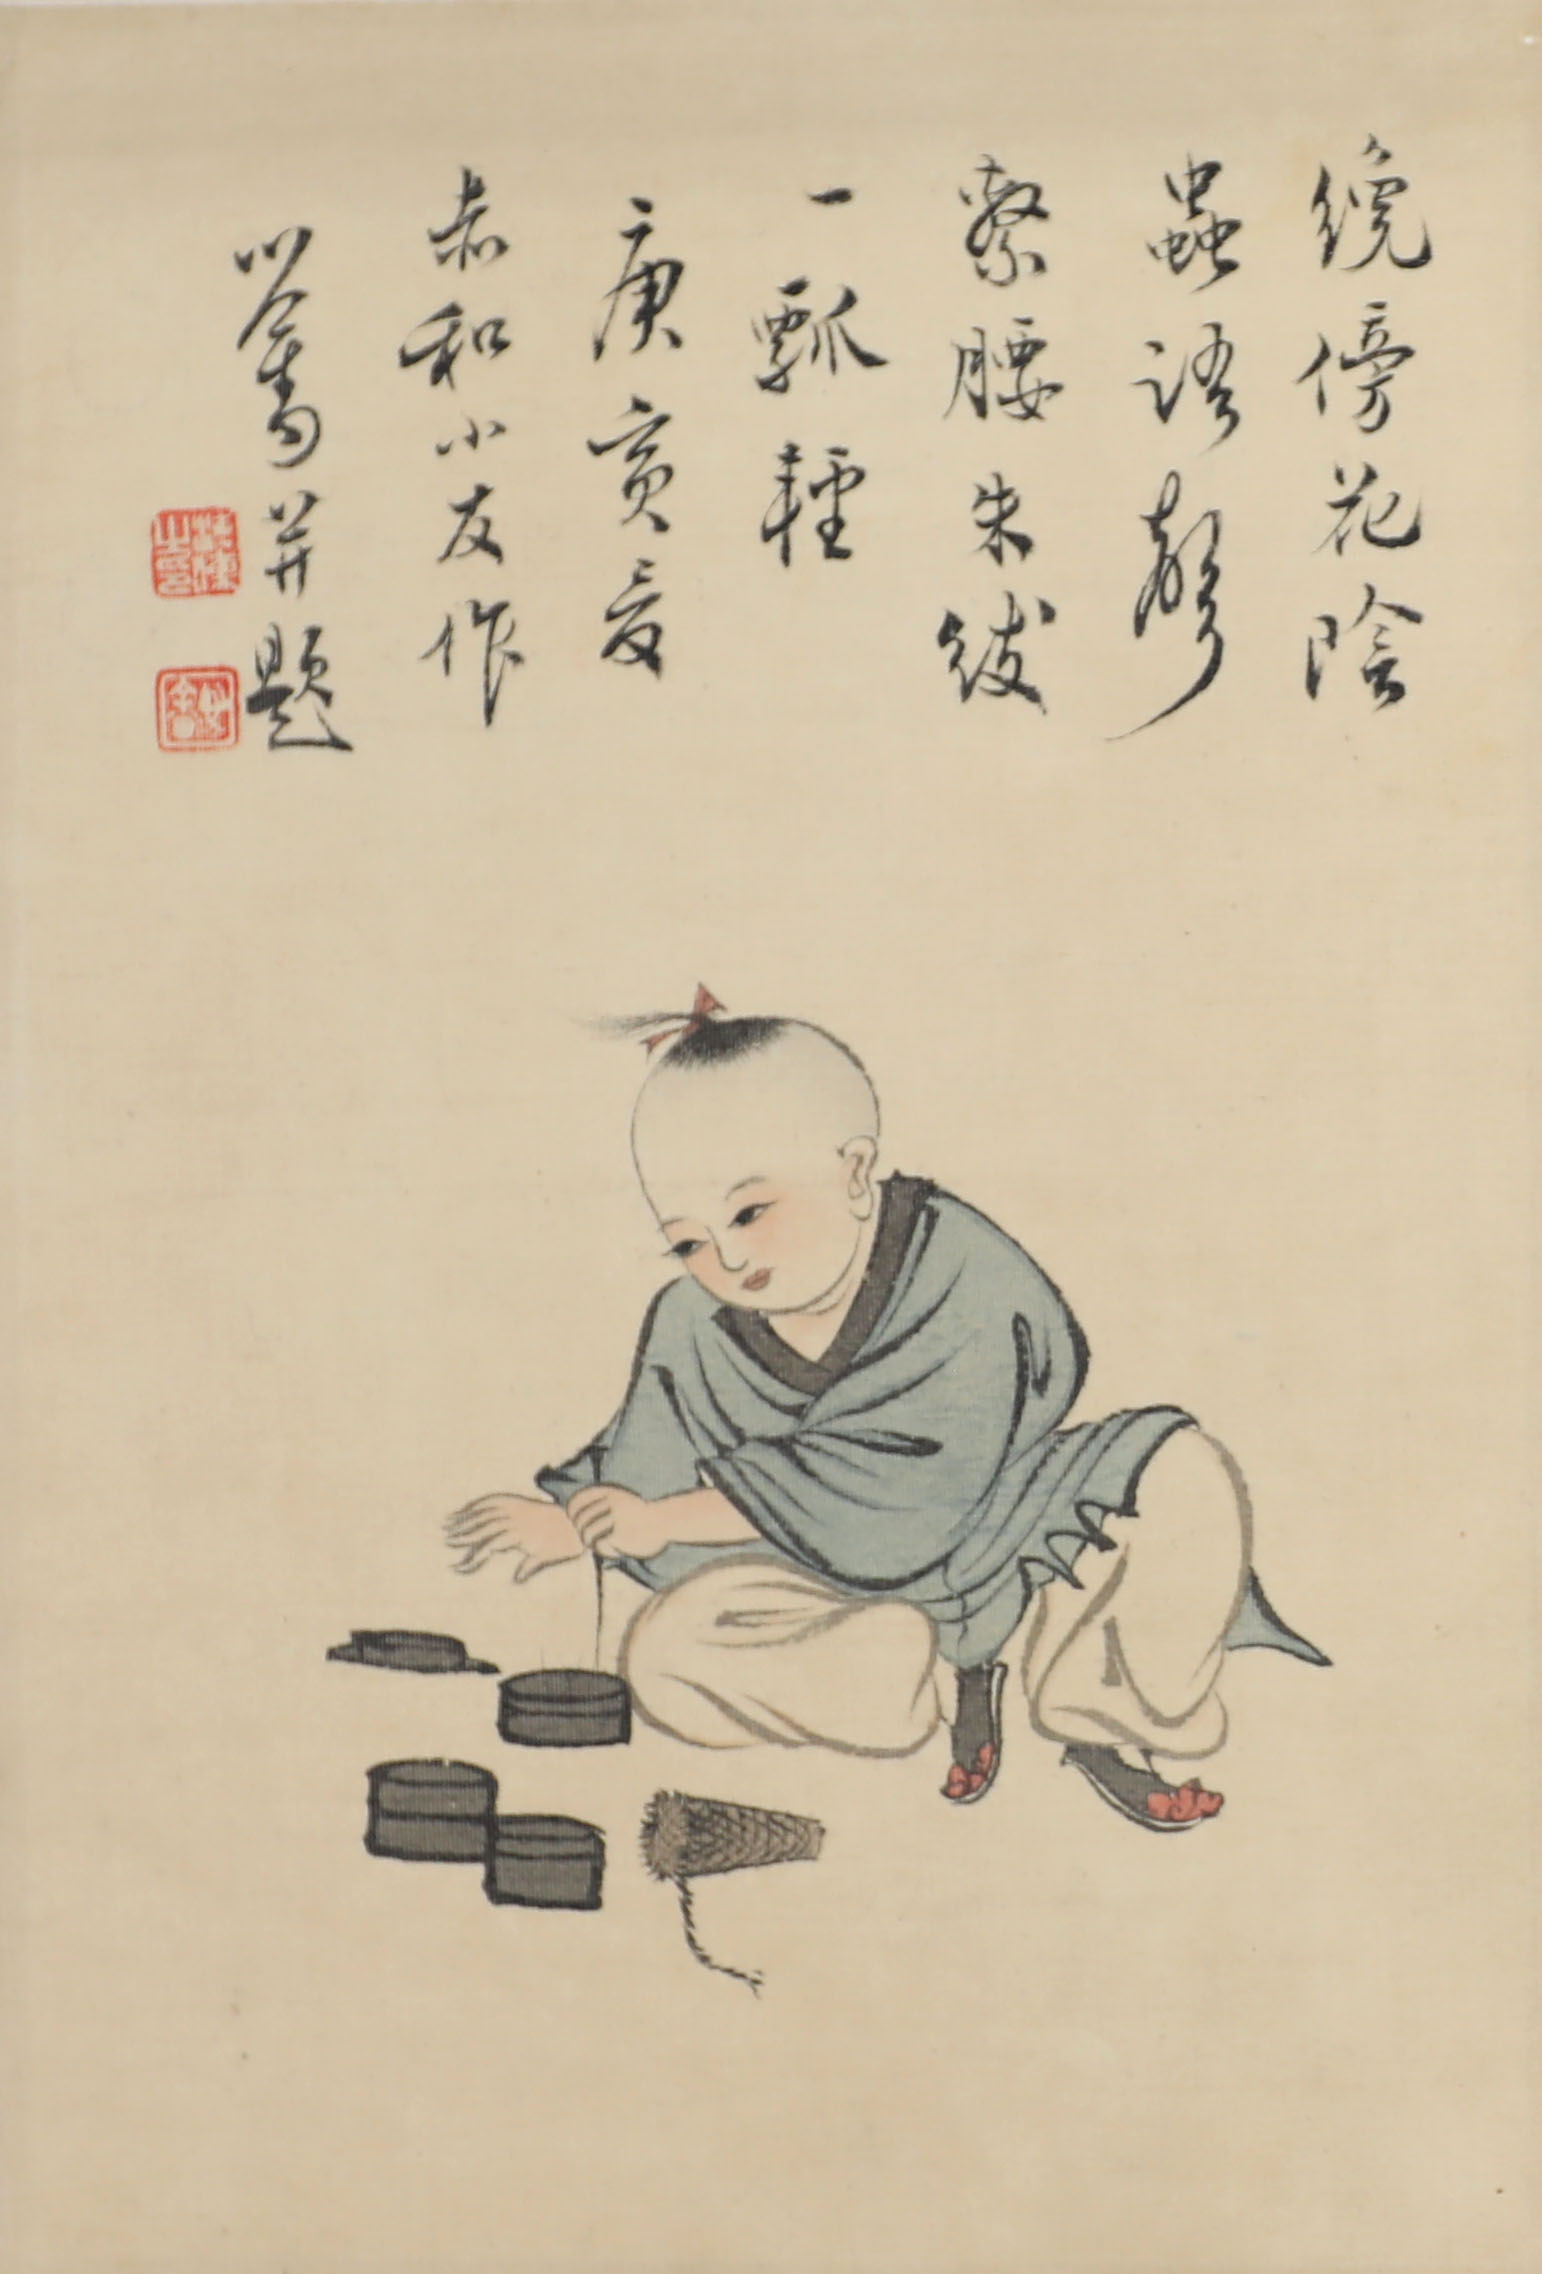 纔傍花陰
蟲語聲
繫腰朱紱
一瓢輕
庚寅夏
赤和小友作
溥并題